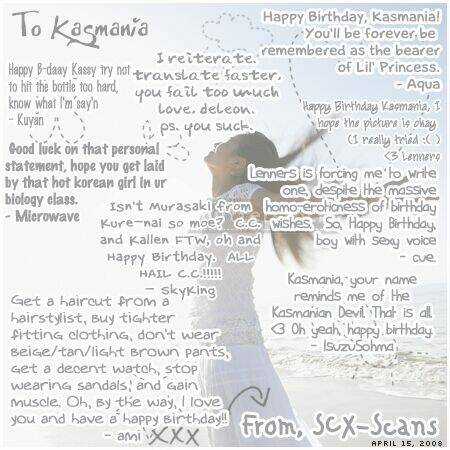 To Kasmania
Happy Birthday, Kasmania!
You'll be forever be
remembered as the bearer
of Lil' Princess.
- Aqua
I reiterate.
translate faster.
you fail too much
love. deleon.
ps. you suck.
Happy B-daay Kassy try not
to hit the bottle too hard,
know what I'm say'n
- Kuyan
Happy Birthday Kasmania, I
hope the picture is okay
(I really tried :( )
<3 Lenners
Good luck on that personal
statement, hope you get laid
by that hot korean girl in ur
biology class.
- Microwave
Lenners is forcing me to write
one, despite the massive
homo-eroticness of birthday
wishes. So, Happy Birthday,
boy with sexy voice
- cue.
Isn't Murasaki from
Kure-nai so moe? C.C.
and Kallen FTW, oh and
Happy Birthday. ALL
HAIL C.C.!!!!!
- skyking
Kasmania, your name
reminds me of the
Kasmanian Devil. That is all.
<3 Oh yeah, happy birthday.
- IsuzuSohma
Get a haircut from a
hairstylist, buy tighter
fitting clothing, don't wear
beige/tan/light brown pants,
get a decent watch, stop
wearing sandals, and gain
muscle. Oh, by the way, I love
you and have a happy birthday!!
- ami XXX
from, SCX-Scans
APRIL 15, 2008